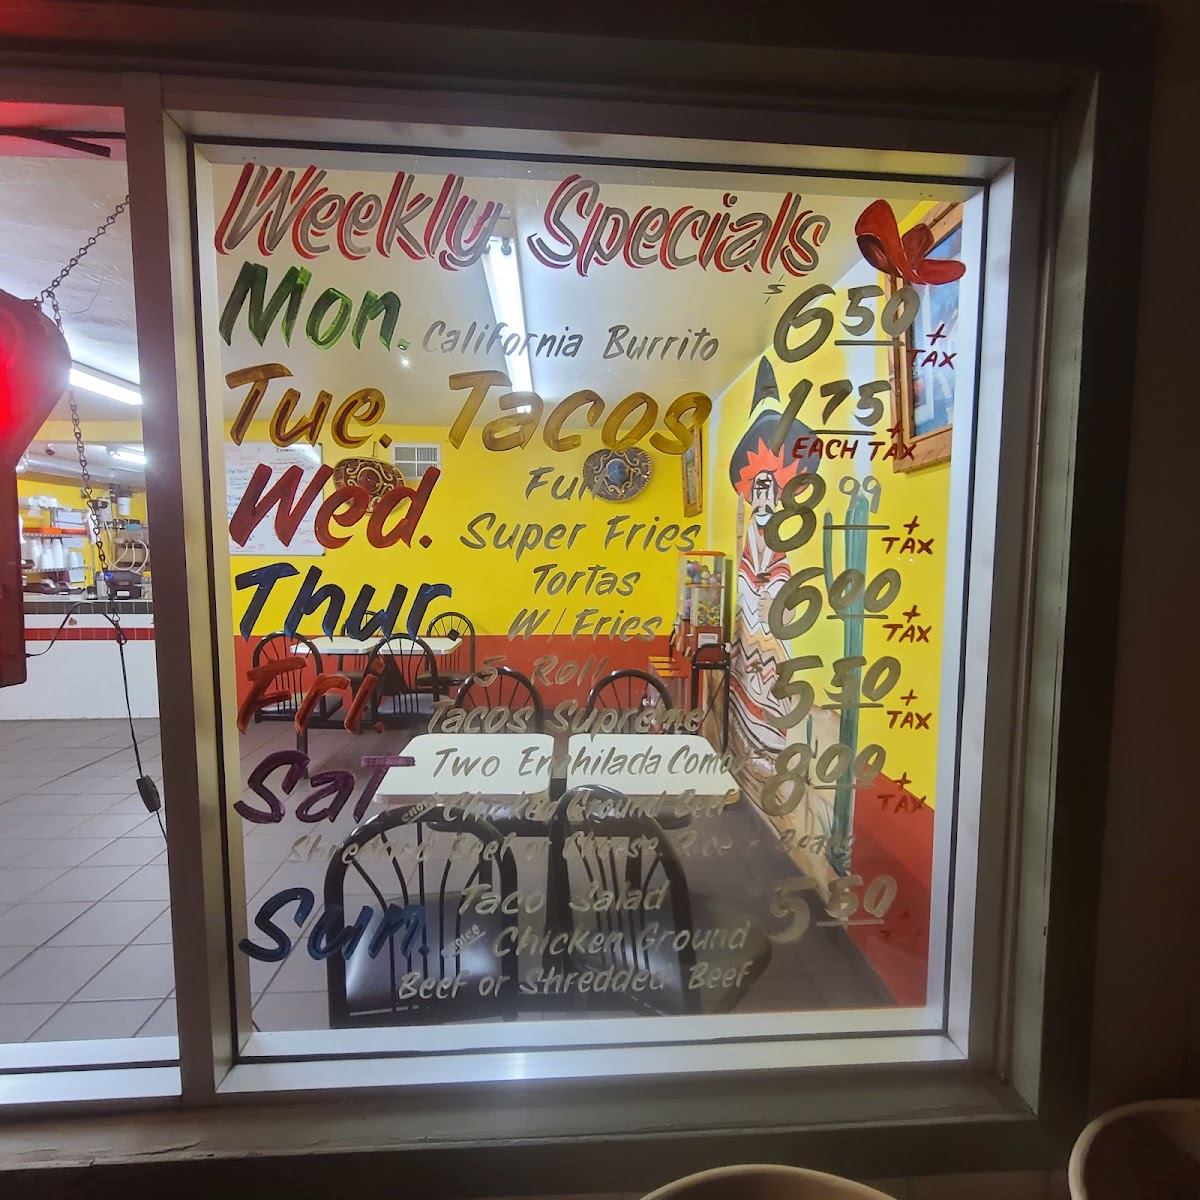 Weekly Specials
Mon. California Burrito $6.50 + TAX
Tue. Tacos 1.75 + EACH TAX
Wed. Full Super Fries 8.99 + TAX
Thur Tortas W/Fries 6.00 + TAX
Fri. 5 Roll Tacos Supreme 5.50 + TAX
Sat Two Enchilada Combo 8.00 + TAX
Chicken, Ground Beef
Shredded Beef or Cheese, Rice - Beans
Sun. Taco Salad 5.50
choice Chicken, Ground
Beef or Shredded Beef